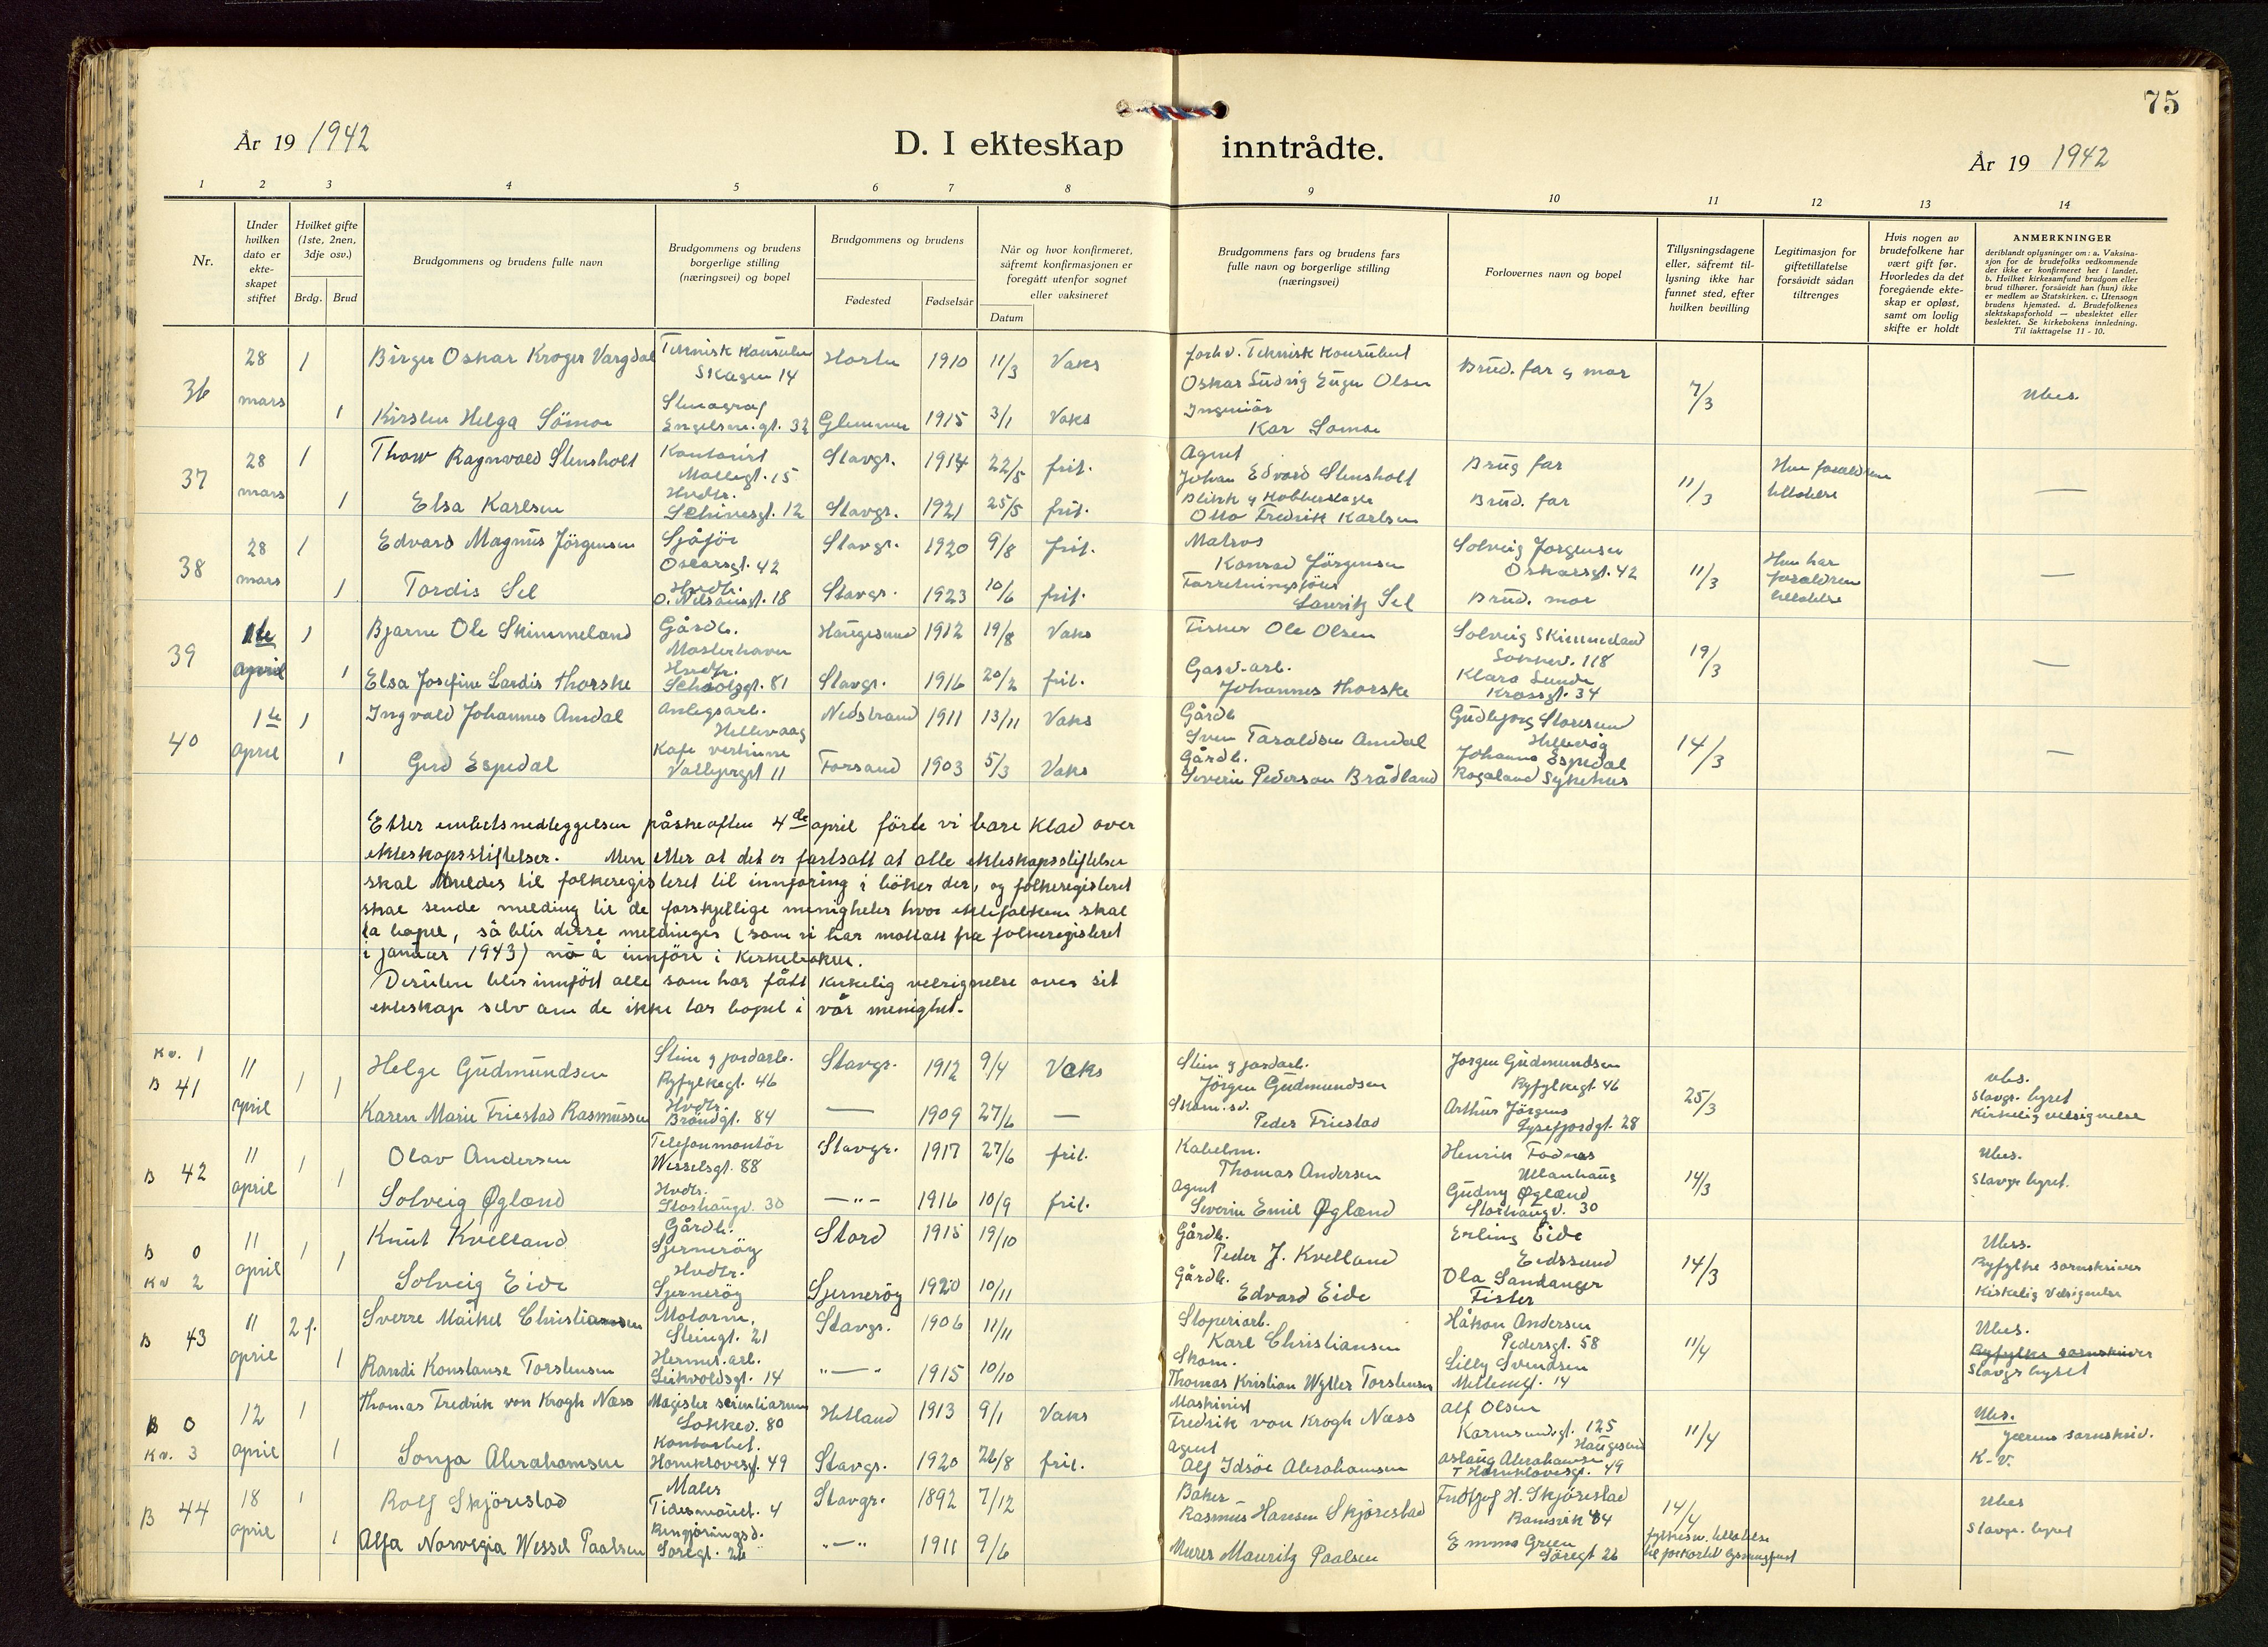 75
År 19 1942
D. I ekteskap inntrådte.
År 19 1942
1 2 3 4 5 6 7 8 9 10 11 12 13 14
Nr.
Under hvilken dato er ekte-skapet stiftet
Hvilket gifte (1ste, 2nen, 3dje osv.)
Brdg. Brud
Brudgommens og brudens fulle navn
Brudgommens og brudens borgerlige stilling (næringsvei) og bopel
Brudgommens og brudens
Fødested Fødselsår
Når og hvor konfirmeret, såfremt konfirmasjonen er foregått utenfor sognet eller vaksineret
Datum
Brudgommens fars og brudens fars fulle navn og borgerlige stilling (næringsvei)
Forlovernes navn og bopel
Tillysningsdagene eller, såfremt til-lysning ikke har funnet sted, efter hvilken bevilling
Legitimasjon for giftetillatelse forsåvidt sådan tiltrenges
Hvis nogen av brudefolkene har vært gift før. Hvorledes da det foregående ekte-skap er opløst, samt om lovlig skifte er holdt
ANMERKNINGER
deriblandt oplysninger om: a. Vaksina-sjon for de brudefolks vedkommende der ikke er konfirmeret her i landet. b. Hvilket kirkesamfund brudgom eller brud tilhører, forsåvidt han (hun) ikke er medlem av Statskirken. c. Utensogn brudens hjemsted. d. Brudefolkenes slektskapsforhold — ubeslektet eller beslektet. Se kirkebokens innledning. Til iakttagelse 11 - 10.
36 28 mars 1 Birger Oskar Kroger Vargdal Teknisk Konsulen Skagen 14 Horten 1910 11/3 Vaks
forhv. Teknisk Konsulent Oskar Ludvig Eugen Olsen Brud. far og mor 7/3 Ubes.
1 Kirsten Helga Sömoe Engelsm.gt. 32 Glemmen 1915 3/1 Vaks
Ingeniör Kar Sömoe
37 28 mars 1 Thow Ragnvald Stensholt Kontorist Møllegt. 15 Stavgr. 1914 22/5 frit.
Agent Johan Edvard Stensholt Brug far 11/3
1 Elsa Karlsen Hvdtr. 12 Stavgr. 1921 25/5 frit.
Otto Fredrik Karlsen Brud. far —
38 28 mars 1 Edvard Magnus Jörgensen Sjåför Oscarsgt. 42 Stavgr. 1920 9/8 frit.
Matros Konrad Jörgensen Solveig Jörgensen Oskarsgt. 42 11/3 Hun har foreldren tillatelse
1 Tordis Sel Hvdtr. O. Nilsensgt. 18 Stavgr. 1923 10/6 frit.
Lauritz Sel Brud. mor —
39 1ste april 1 Bjarne Ole Skimmeland Gårdb. Mosterhavn Haugesund 1912 19/8 Vaks
Fisker Ole Olsen Solveig Skimmeland 118 19/3
1 Elsa Josefine Lardis Thorske Hvdtr. 81 Stavgr. 1916 20/2 frit.
Gasv.arb. Johannes Thorske Klara Sunde Krossgt. 34 —
40 1ste april 1 Ingvald Johannes Amdal Anlegsarb. Hellevaag Nedstrand 1911 13/11 Vaks
Gårdb Sven Taraldsen Amdal Gudbjorg Storesund Hellevåg 14/3
1 Gerd Espedal Kafe vertinne Valbergt 11 Forsand 1903 5/3 Vaks
Gårdb. Severin Pederson Brådland Johanna Espedal Rogaland Sykehus —
Etter embetsnedleggelsen påskeaften 4de april förte vi bare klad over
ekteskapsstiftelser. Men etter at det er fastsatt at alle ekteskapsstiftelser
skal meldes til folkeregisteret til innföring i böker der, og folkeregisteret
skal sende melding til de forskjellige menigheter hvor ektefolkene skal
ta bopel, så blir disse meldinger (som vi har mottatt fra folkeregisteret
i januar 1943) nå å innföre i kirkeboken.
Desuten blir innfört alle som har fått kirkelig velsignelse over sit
ekteskap selv om de ikke tar bopel i vår menighet.
Kv. 1 B 41 11 april 1 Helge Gudmundsen Sten og jordarb. Ryfylkegt. 46 Stavgr. 1912 9/4 Vaks
Sten og jordarb. Jörgen Gudmundsen Jorgen Gudmundsen Ryfylkegt. 46 25/3 ubs. Stavgr. byret Kirkelig velsignelse
1 Karen Marie Friestad Rasmussen Hvdtr. Bröndgt. 84 — 1909 27/6 —
Peder Friestad Arthur Jörgens Lysefjordgt. 28
B 42 11 april 1 Olav Andersen Telefonmontör Wesselsgt. 88 Stavgr. 1917 27/6 frit.
Kabelm. Thomas Andersen Henrik Fodnes Ullanhaug 14/3 Ubes. Stavgr byret.
1 Solveig Øgland Hvdtr. Storhaugv. 30 —"— 1916 10/9 frit.
Agent Severin Emil Øgland Gudny Øgland Storhaugv. 30
B 0 Kv 2 11 april 1 Knut Kvelland Gårdb. Sjernerög Stord 1915 19/10
Gårdb. Peder J. Kvelland Erling Eide Eidssund 14/3 Ubes. Ryfylke sorenskriver Kirkelig velsignelse
1 Solveig Eide Hvdtr. Sjernerög Sjernerög 1920 10/11
Gårdb. Edvard Eide Ola Sandanger Fister
B 43 11 april 2 f. Sverre Maikel Christiansen Motorm. Steingt. 21 Stavgr. 1906 11/11
Stoperiarb. Karl Christiansen Håkon Andersen Pedersgt. 58 11/4 Ubes. Ryfylke sorenskriver Stavgr byret
1 Randi Konstanse Torstensen Hermet.arb. 14 "—" 1915 10/10
Skom. Thomas Kristian Wyller Torstensen Lilly Svendsen 14
B 0 Kv. 3 12 april 1 Thomas Fredrik von Krogh Næss Magister scientiarum Lokkev. 80 Hetland 1913 9/1 Vaks
Maskinist Fredrik von Krogh Næss Alf Olsen Karmsundgt. 125 Haugesund 11/4 Ubes. Jæren sorenskriv. K-V.
1 Sonja Abrahamsen Kontorbet. Hornklovesgt. 49 Stavgr. 1920 26/8 frit.
Agent Alf Idsöe Abrahamsen Aslaug Abrahamsen Hornklovesgt. 49
B 44 18 april 1 Rolf Skjörestad Maler 4 Stavgr. 1892 7/12
Baker Rasmus Hansen Skjörestad Fridtjof H. Skjörestad Ramsvik 84 14/4 Ubes Stavgr. byret
1 Alfa Norvegia Wessel Paalsen Rengjöringsd. Söregt. 26 "—" 1911 9/6
Murer Mauritz Paalsen Emma Green Söregt 26 fylkesm. tillatelse til forkortet lysningsfrist